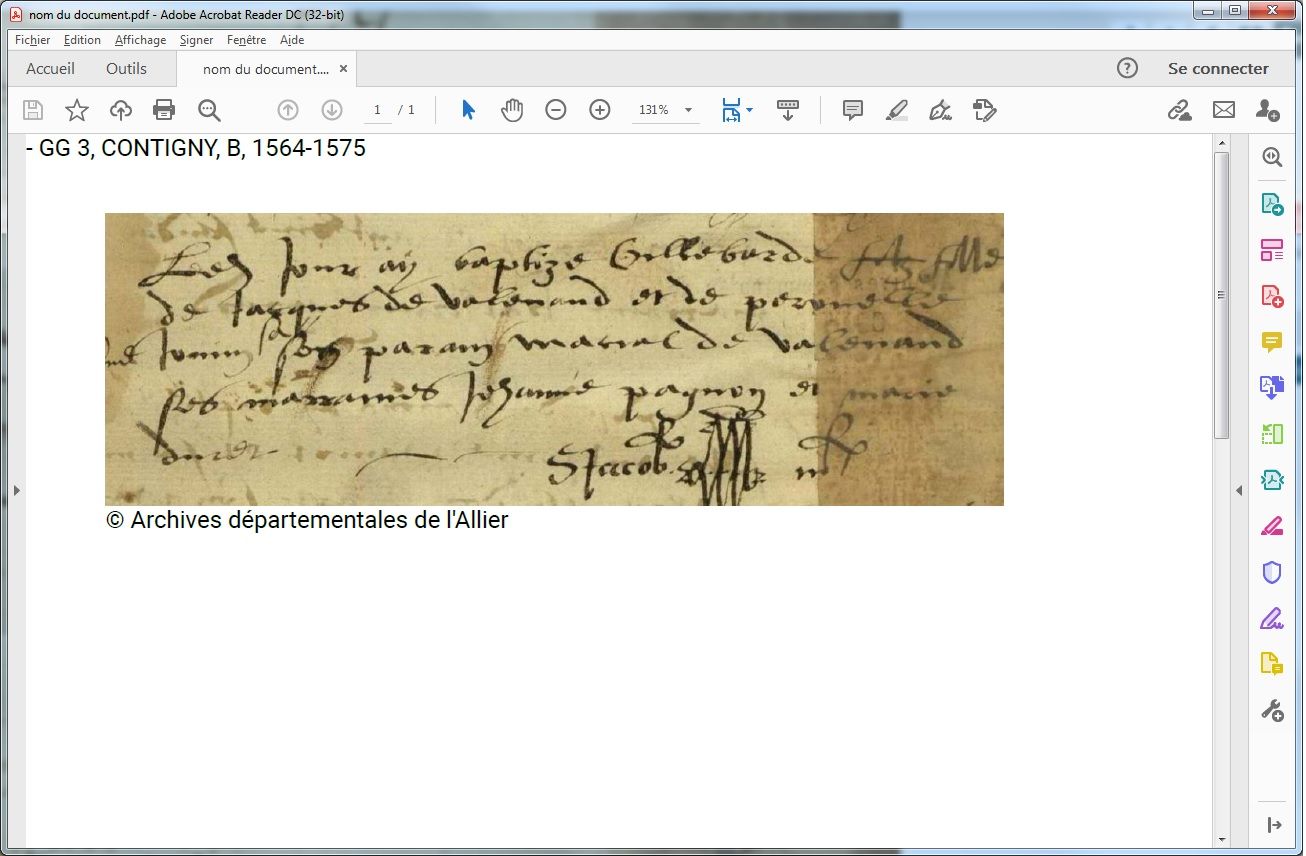 nom du document.pdf - Adobe Acrobat Reader DC (32-bit)
Fichier Edition Affichage Signer Fenêtre Aide
Accueil Outils nom du document.... × Se connecter
1 / 1 131%
- GG 3, CONTIGNY, B, 1564-1575
Led Jour ay baptize Gillebarde fille
de Jacques de valenand et de peronelle
son parain marcial de valenand
ses marraines Jehanne pagnon et marie
duret
Jacob
© Archives départementales de l'Allier